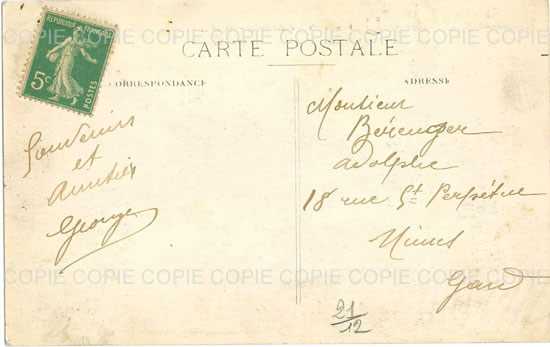 REPUBLIQUE FRANÇAISE
5c
POSTES
CARTE POSTALE
CORRESPONDANCE
ADRESSE
Souvenirs
et
Amitiés
George
Monsieur
Bérenger
Adolphe
18 rue Ste Perpétue
Nimes
Gard
21/12
COPIE COPIE COPIE COPIE COPIE COPIE COPIE COPIE
COPIE COPIE COPIE COPIE COPIE COPIE COPIE COPIE
COPIE COPIE COPIE COPIE COPIE COPIE COPIE COPIE